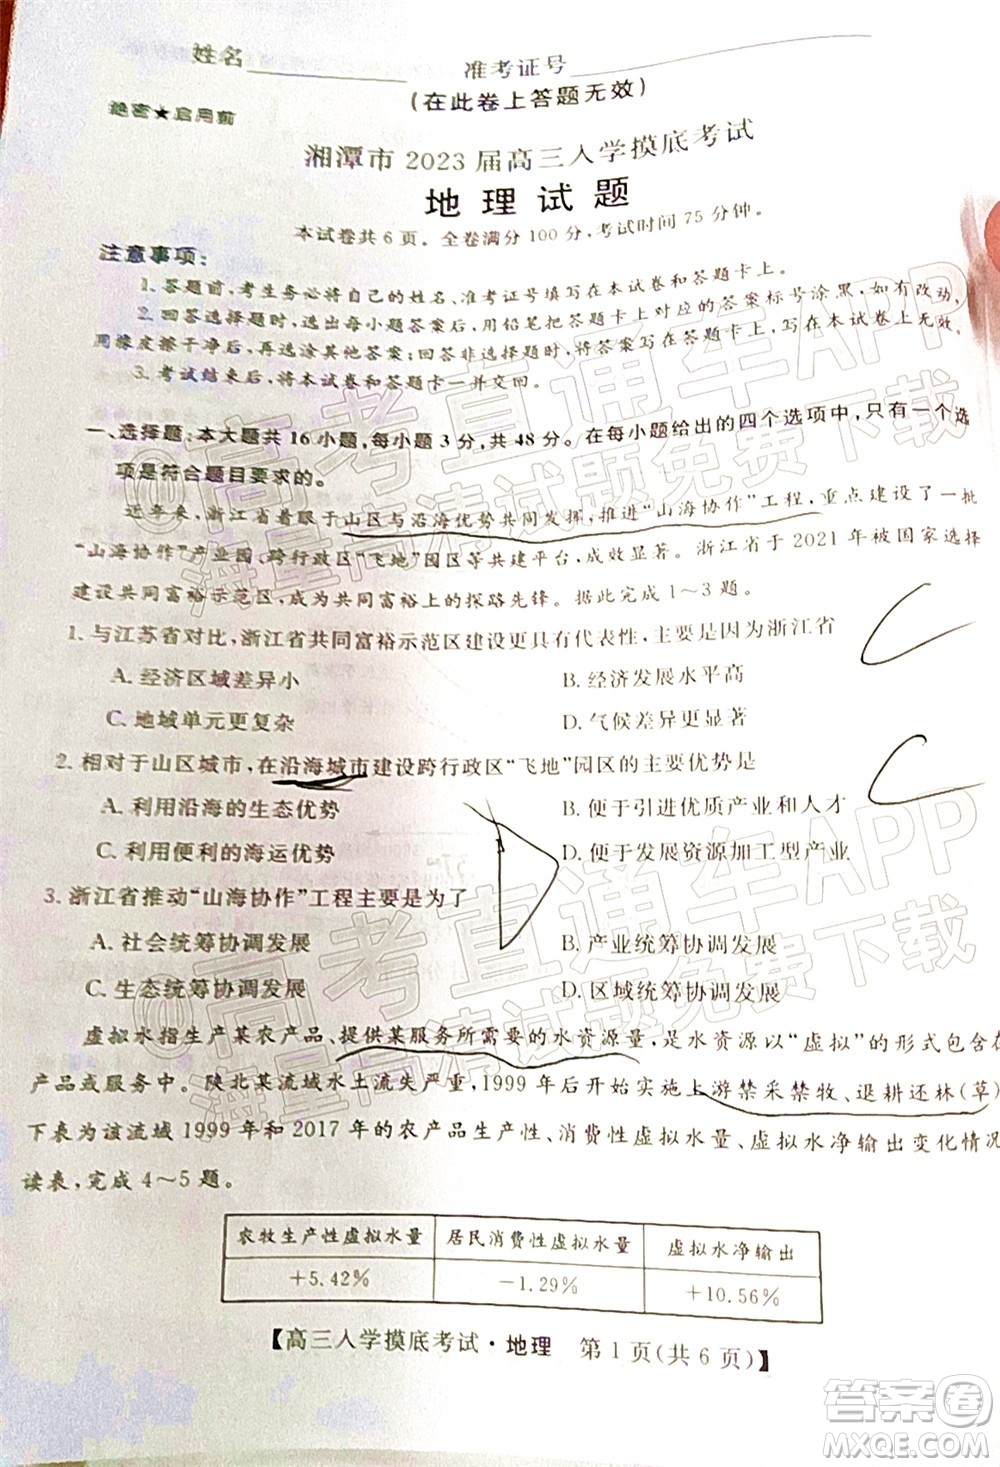 姓名 准考证号
(在此卷上答题无效)
绝密★启用前
湘潭市 2023 届高三入学摸底考试
地理试题
本试卷共 6 页。全卷满分 100 分,考试时间 75 分钟。
注意事项:
1. 答题前,考生务必将自己的姓名、准考证号填写在本试卷和答题卡上。
2. 回答选择题时,选出每小题答案后,用铅笔把答题卡上对应的答案标号涂黑,如有改动,
用橡皮擦干净后,再选涂其他答案;回答非选择题时,将答案写在答题卡上,写在本试卷上无效。
3. 考试结束后,将本试卷和答题卡一并交回。
一、选择题:本大题共 16 小题,每小题 3 分,共 48 分。在每小题给出的四个选项中,只有一个选
项是符合题目要求的。
近年来,浙江省着眼于山区与沿海优势共同发挥,推进“山海协作”工程,重点建设了一批
“山海协作”产业园、跨行政区“飞地”园区等共建平台,成效显著。浙江省于 2021 年被国家选择
建设共同富裕示范区,成为共同富裕上的探路先锋。据此完成 1~3 题。
1. 与江苏省对比,浙江省共同富裕示范区建设更具有代表性,主要是因为浙江省
A. 经济区域差异小 B. 经济发展水平高
C. 地域单元更复杂 D. 气候差异更显著
2. 相对于山区城市,在沿海城市建设跨行政区“飞地”园区的主要优势是
A. 利用沿海的生态优势 B. 便于引进优质产业和人才
C. 利用便利的海运优势 D. 便于发展资源加工型产业
3. 浙江省推动“山海协作”工程主要是为了
A. 社会统筹协调发展 B. 产业统筹协调发展
C. 生态统筹协调发展 D. 区域统筹协调发展
虚拟水指生产某农产品、提供某服务所需要的水资源量,是水资源以“虚拟”的形式包含在
产品或者服务中。陕北某流域水土流失严重,1999 年后开始实施上游禁采禁牧、退耕还林(草)
下表为该流域 1999 年和 2017 年的农产品生产性、消费性虚拟水量、虚拟水净输出变化情况
读表,完成 4~5 题。
农牧生产性虚拟水量 居民消费性虚拟水量 虚拟水净输出
+5.42% −1.29% +10.56%
【高三入学摸底考试·地理 第 1 页(共 6 页)】
@高考直通车APP
海量高清试题免费下载
@高考直通车APP
海量高清试题免费下载
答案卷
MXQE.COM